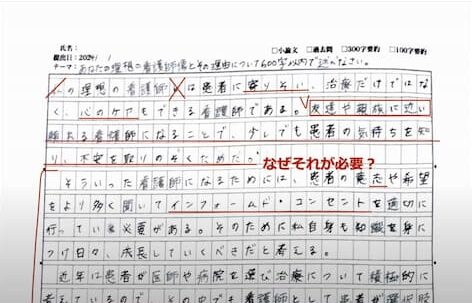 氏名:
提出日:2024/ / □小論文 □過去問 □300字要約 □100字要約
テーマ:あなたの理想の看護師像とその理由について600字以内で述べなさい。
私の理想の看護師像は患者に寄りそい、治療だけではな
く、心のケアもできる看護師である。友達や親族に近い
頼れる看護師になることで、少しでも患者の気持ちを知
り、不安を取りのぞくためだ。
なぜそれが必要?
そういった看護師になるためには、患者の意志や希望
をより多く聞いてインフォームド・コンセントを適切に
行っていく必要がある。そのために私自身も知識を身に
つけ日々、成長していくべきだと考える。
近年は患者が医師や病院を選び治療について積極的に
考えているので、その中でも看護師は患者が選択